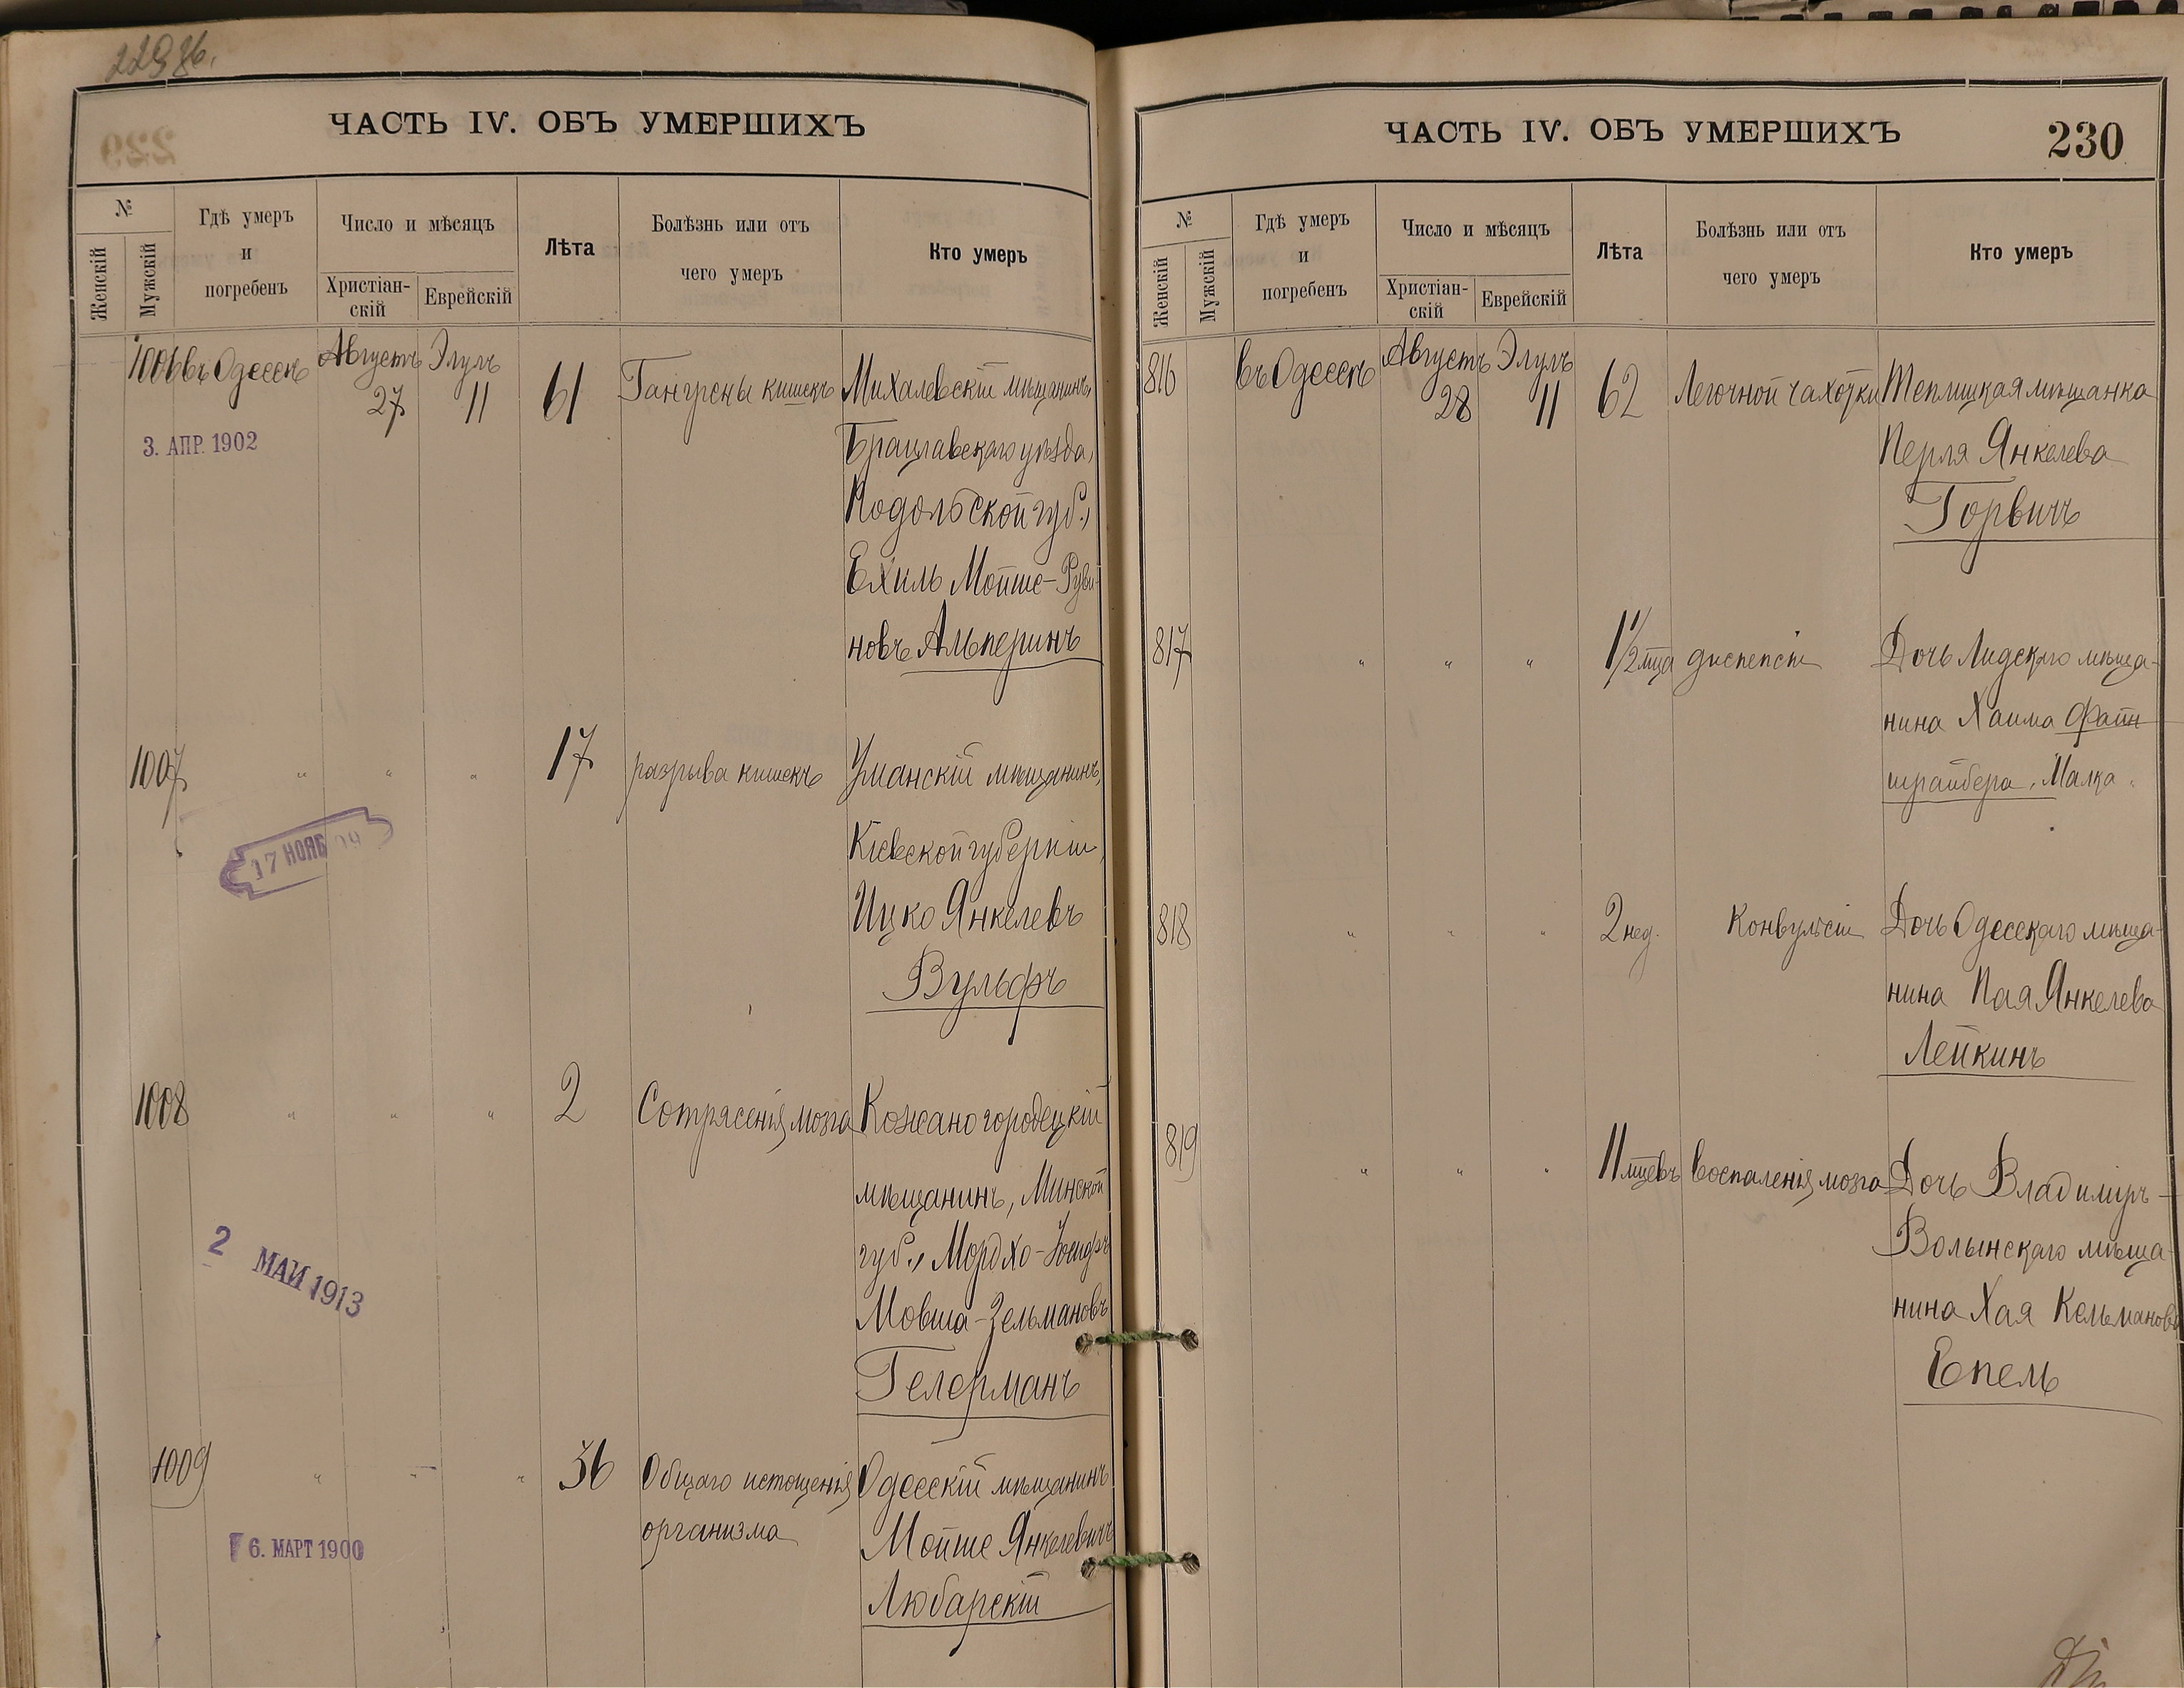 229 об.
ЧАСТЬ IV. ОБЪ УМЕРШИХЪ
№
Женскій
Мужскій
Гдѣ умеръ
и
погребенъ
Число и мѣсяцъ
Христіан-
скій
Еврейскій
Лѣта
Болѣзнь или отъ
чего умеръ
Кто умеръ
1006 въ Одессѣ Августъ 27 Элулъ 11 61 Гангрены кишекъ Михалевскій мѣщанинъ,
3. АПР. 1902
Брацлавскаго уѣзда,
Подольской губ.,
Ехиль Мойше-Руви-
новъ Альперинъ
1007 " " " 17 разрыва кишекъ Уманскій мѣщанинъ,
17 НОЯБ 99
Кіевской губерніи,
Ицко Янкелевъ
Вульфъ
1008 " " " 2 Сотрясенія мозга Кожаногородецкій
мѣщанинъ, Минской
2 МАИ 1913
губ., Мордхо-Іосифъ
Мовша-Зельмановъ
Гелерманъ
1009 " " " 36 Общаго истощенія Одесскій мѣщанинъ
организма Мойше Янкелевичъ
6. МАРТ 1900
Любарскій
ЧАСТЬ IV. ОБЪ УМЕРШИХЪ
230
№
Женскій
Мужскій
Гдѣ умеръ
и
погребенъ
Число и мѣсяцъ
Христіан-
скій
Еврейскій
Лѣта
Болѣзнь или отъ
чего умеръ
Кто умеръ
816 въ Одессѣ Августъ 28 Элулъ 11 62 Легочной чахотки Теплицкая мѣщанка
Перля Янкелева
Горвичъ
817 " " " 1 1/2 мца диспепсіи Дочь Лидскаго мѣща-
нина Хаима Файн
шрайбера, Малка.
818 " " " 2 нед. Конвульсіи Дочь Одесскаго мѣща-
нина Пая Янкелева
Лейкинъ
819 " " " 11 мцевъ воспаленія мозга Дочь Владиміръ-
Волынскаго мѣща-
нина Хая Кельманова
Епель